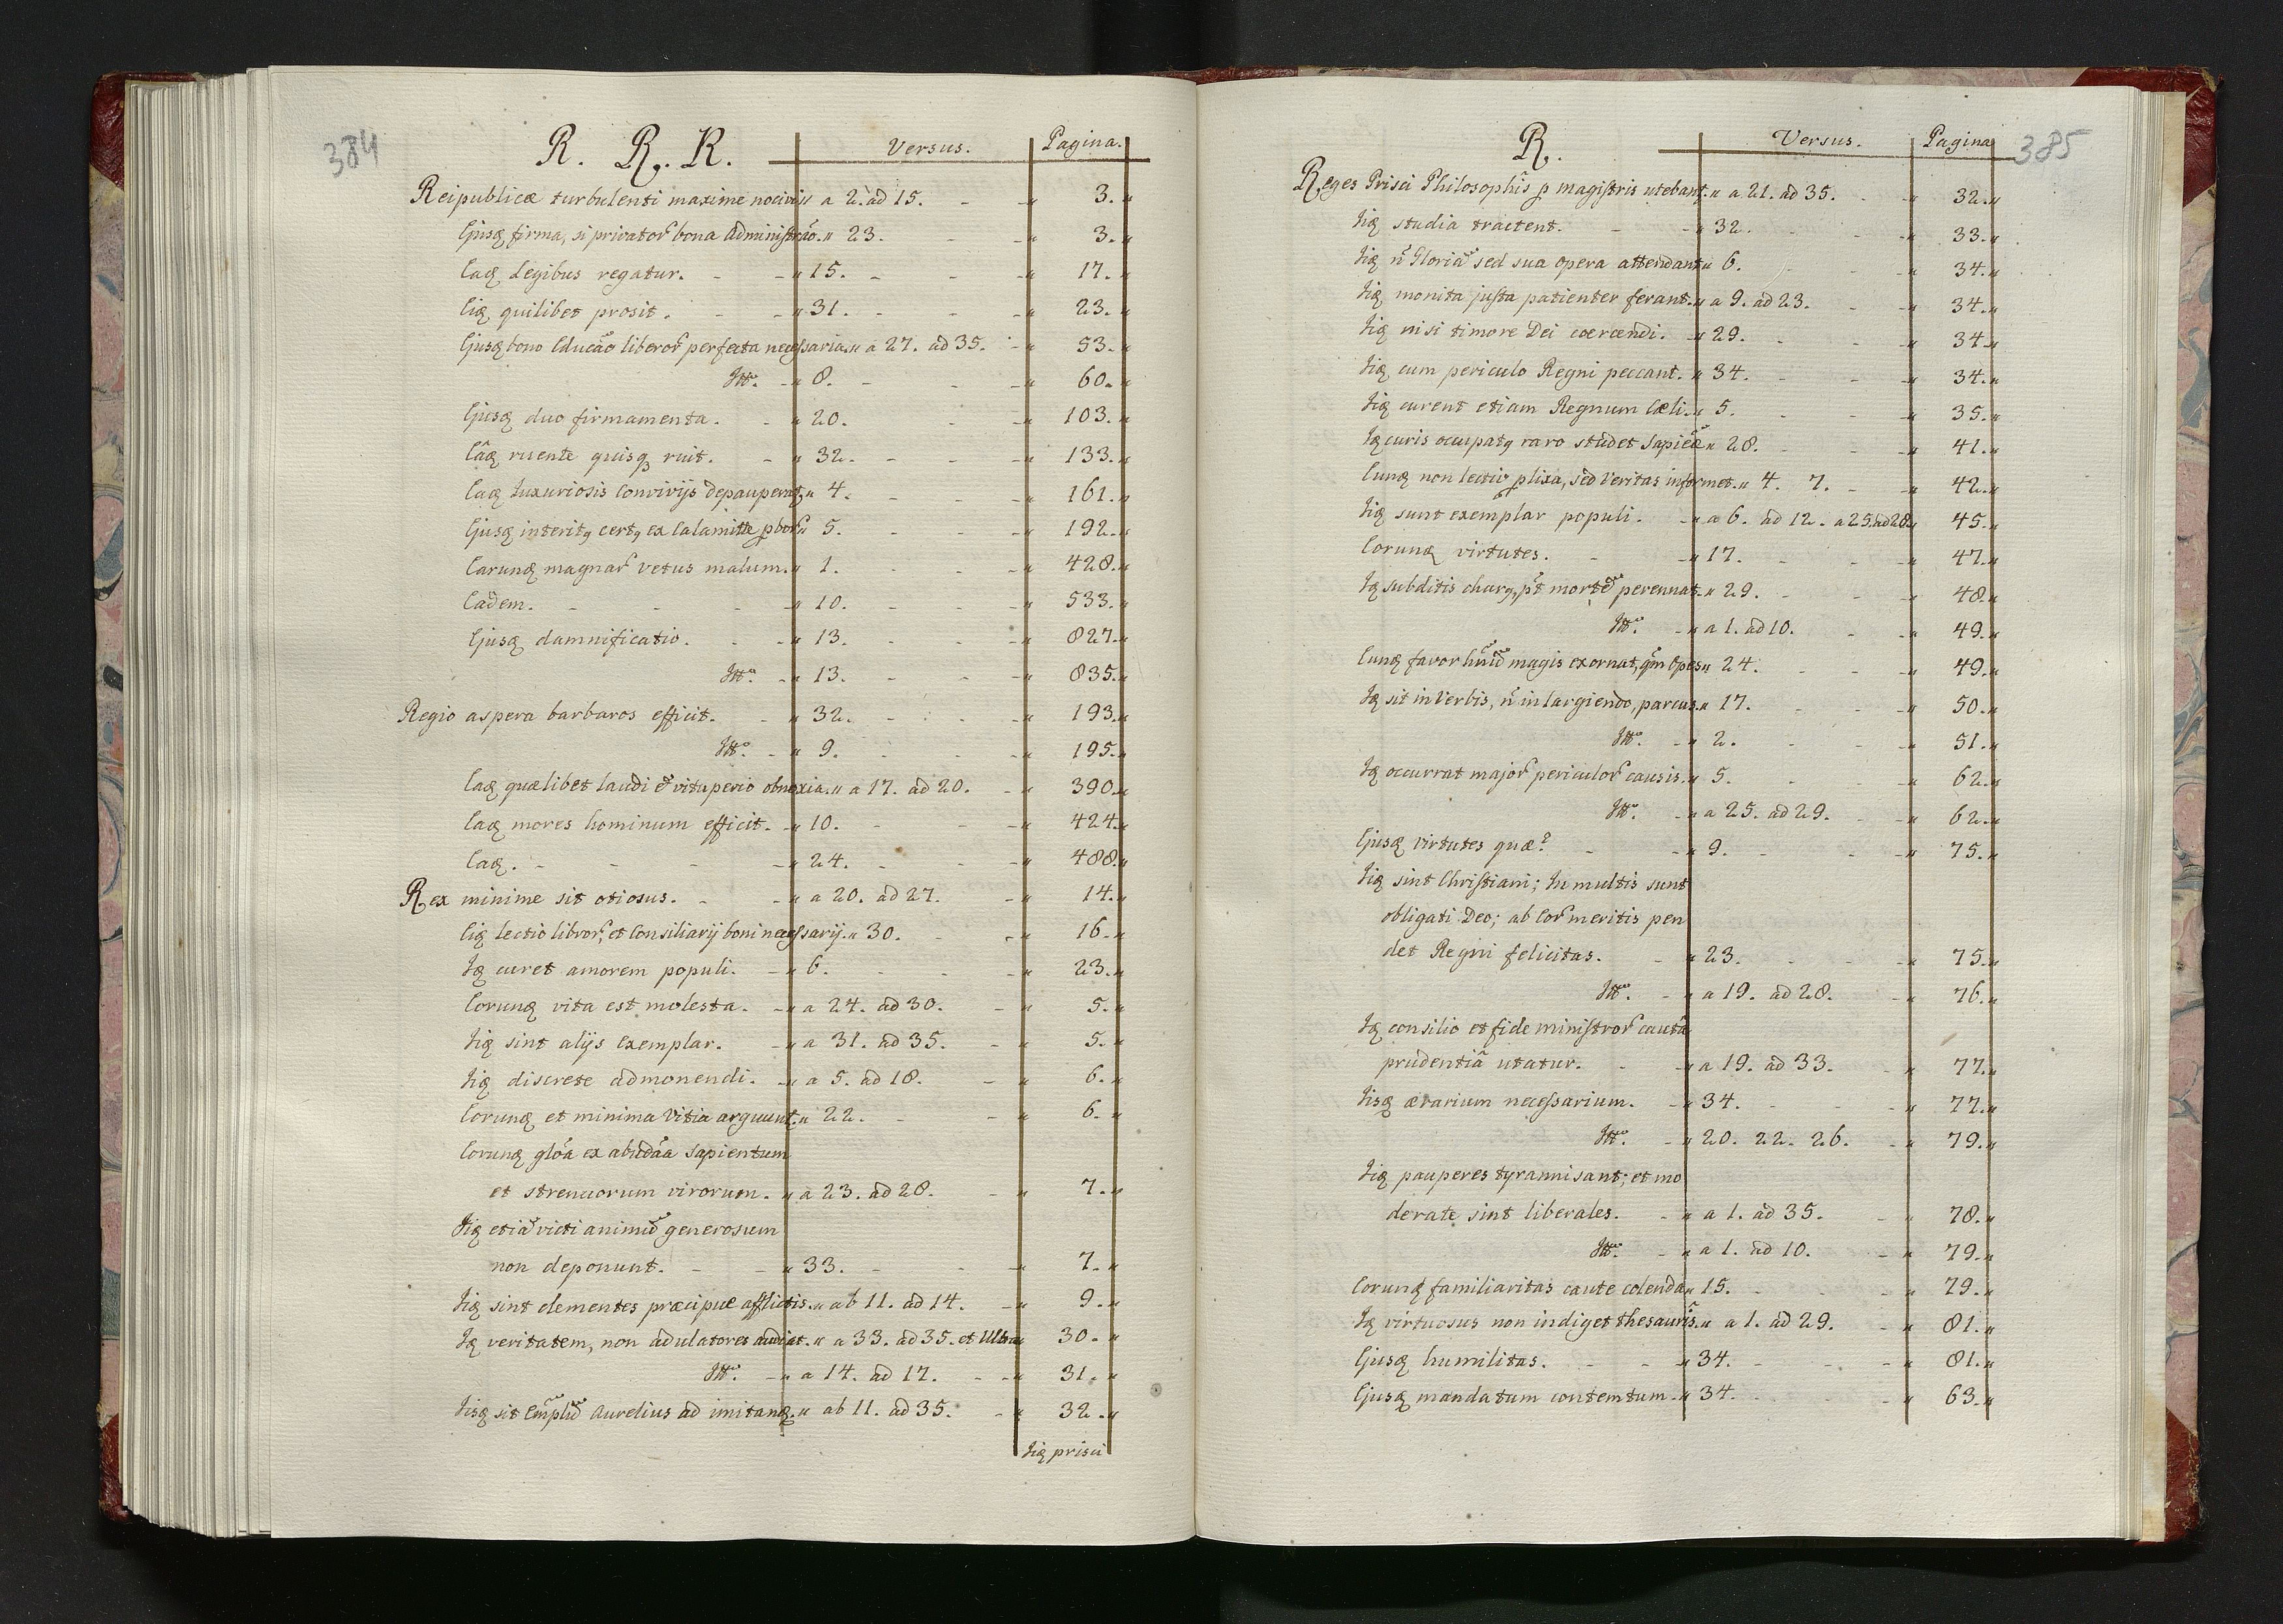 384
R. R. R. Versus. Pagina.
Reipublicæ turbulenti maxime nocivi „ a 2. ad 15. - „ 3. „
Ejusq firma, si privator bona Administrao. „ 23. - - „ 3. „
Eaq Legibus regatur. - - „ 15. - - - „ 17. „
Eiq quilibet prosit. - - „ 31. - - - „ 23. „
Ejusq bono Educao liberor perfecta necessaria. „ a 27. ad 35. - „ 53. „
Itt. - „ 8. - - - „ 60. „
Ejusq duo firmamenta. - „ 20. - - - „ 103. „
Eâq ruente quisq ruit. - „ 32. - - - „ 133. „
Eaq Luxuriosis Convivijs depauperat. „ 4. - - - „ 161. „
Ejusq interitq certq ex Calamitte pbor „ 5. - - - „ 192. „
Earunq magnar vetus malum. „ 1. - - - „ 428. „
Eadem. - - - „ 10. - - - „ 533. „
Ejusq damnificatio. - - „ 13. - - - „ 827. „
Itt. - „ 13. - - - „ 835. „
Regio aspera barbaros efficit. - „ 32. - - - „ 193. „
Itt. - „ 9. - - - „ 195. „
Eaq quælibet laudi & vituperio obnoxia. „ a 17. ad 20. - „ 390. „
Eaq mores hominum efficit. - „ 10. - - - „ 424. „
Eaq. - - - - „ 24. - - - „ 488. „
Rex minime sit otiosus. - - „ a 20. ad 27. - „ 14. „
Eiq lectio libror, et Consiliarij boni necessarij. „ 30. - „ 16. „
Iq curet amorem populi. - „ 6. - - - „ 23. „
Eorunq vita est molesta. - „ a 24. ad 30. - „ 5. „
Iiq sint alijs exemplar. - „ a 31. ad 35. - „ 5. „
Iiq discrete admonendi. - „ a 5. ad 18. - „ 6. „
Eorunq et minima Vitia arguunt. „ 22. - - „ 6. „
Eorunq glôa ex abûdâa Sapientum
et strenuorum virorum. „ a 23. ad 28. - „ 7. „
Iiq etiâ victi animû generosum
non deponunt. - - „ 33. - - - „ 7. „
Iiq sint clementes præcipue afflictis. „ ab 11. ad 14. - „ 9. „
Iq veritatem, non adulatores audiat. „ a 33. ad 35. et Ultra „ 30. „
Itt. - „ a 14. ad 17. - „ 31. „
Iisq sit Emplû Aurelius ad imitanq. „ ab 11. ad 35. - „ 32. „
Iiq prisci
385
R. Versus. Pagina
Reges Prisci Philosophis p magistris utebant. „ a 21. ad 35. - „ 32. „
Iiq studia tractent. - - „ 32. - - - „ 33. „
Iiq ñ Gloriâ sed sua opera attendant „ 6. - - „ 34. „
Iiq monita justa patienter ferant. „ a 9. ad 23. - „ 34. „
Iiq nisi timore Dei coercendi. - „ 29. - - „ 34. „
Iiq cum periculo Regni peccant. „ 34. - - „ 34. „
Iiq curent etiam Regnum Cæli. „ 5. - - „ 35. „
Iq curis occupatq raro studet Sapiêæ „ 28. - - „ 41. „
Eunq non lectio plixa, sed Veritas informet. „ 4. 7. - „ 42. „
Iiq sunt exemplar populi. - „ a 6. ad 12. a 25. ad 28. „ 45. „
Eorunq virtutes. - - „ 17. - - - „ 47. „
Iq subditis charq, pt mortê perennat. „ 29. - - „ 48. „
Itt. - „ a 1. ad 10. - „ 49. „
Eunq favor hnû magis exornat, qm Opes „ 24. - - „ 49. „
Iq sit in Verbis, ñ in largiendo, parcus. „ 17. - - „ 50. „
Itt. - „ 2. - - - „ 51. „
Iq occurrat major periculor causis. „ 5. - - „ 62. „
Itt. - „ a 25. ad 29. - „ 62. „
Ejusq virtutes quæ? - - „ 9. - - - „ 75. „
Iiq sint Christiani; In multis sunt
obligati Deo; ab Eor meritis pen
det Regni felicitas. - „ 23. - - - „ 75. „
Itt. - „ a 19. ad 28. - „ 76. „
Iq consilio et fide ministror cautâ
prudentiâ utatur. - - „ a 19. ad 33. - „ 77. „
Iisq ærarium necessarium. - „ 34. - - - „ 77. „
Itt. - „ 20. 22. 26. - „ 79. „
Iiq pauperes tyrannisant; et mo
derate sint liberales. - „ a 1. ad 35. - „ 78. „
Itt. - „ a 1. ad 10. - „ 79. „
Eorunq familiaritas caute colenda „ 15. - - - „ 79. „
Iq virtuosus non indiget thesauris. „ a 1. ad 29. - „ 81. „
Ejusq humilitas. - - „ 34. - - - „ 81. „
Ejusq mandatum contemtum. „ 34. - - - „ 63. „